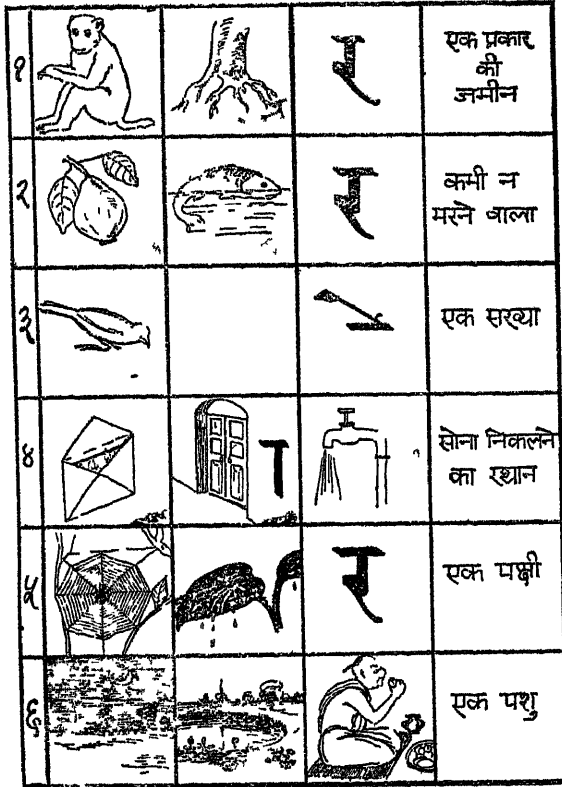 १ र एक प्रकार
की
जमीन
२ र कभी न
मरने वाला
३ एक सख्या
४ ा सोना निकलने
का स्थान
५ र एक पक्षी
६ एक पशु